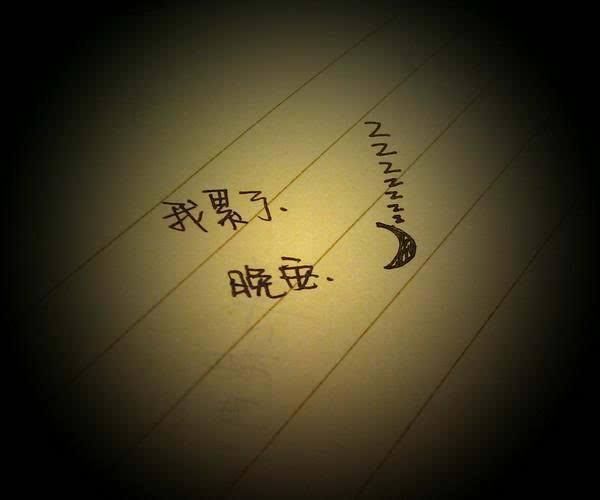 我累了.
晚安.
z
z
z
z
z
z
z